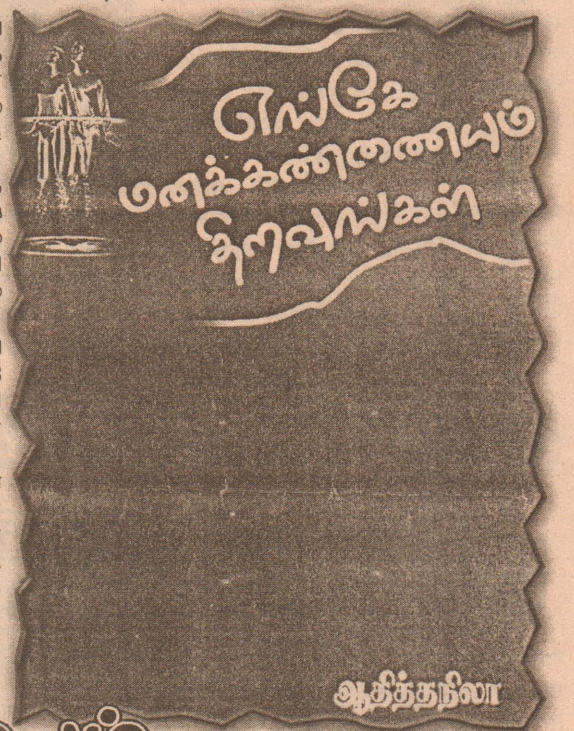 எங்கே
மனக்கண்ணையும்
திறவுங்கள்
ஆதித்தநிலா